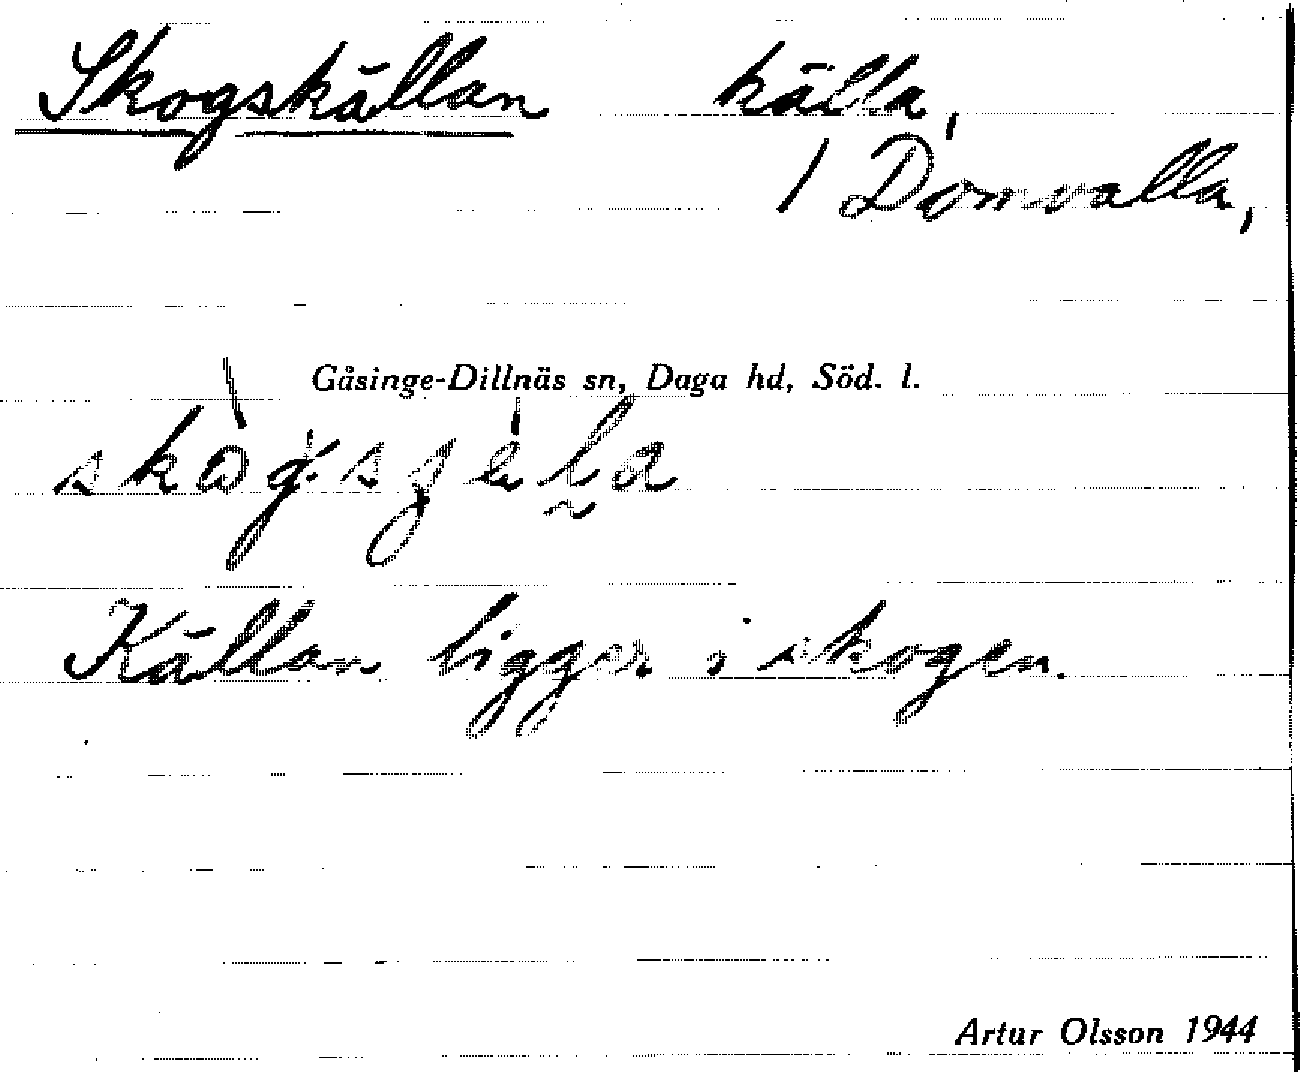 Skogskällan källa,
1 Domvalla,
Gåsinge-Dillnäs sn, Daga hd, Söd. l.
Källan ligger i skogen.
Artur Olsson 1944